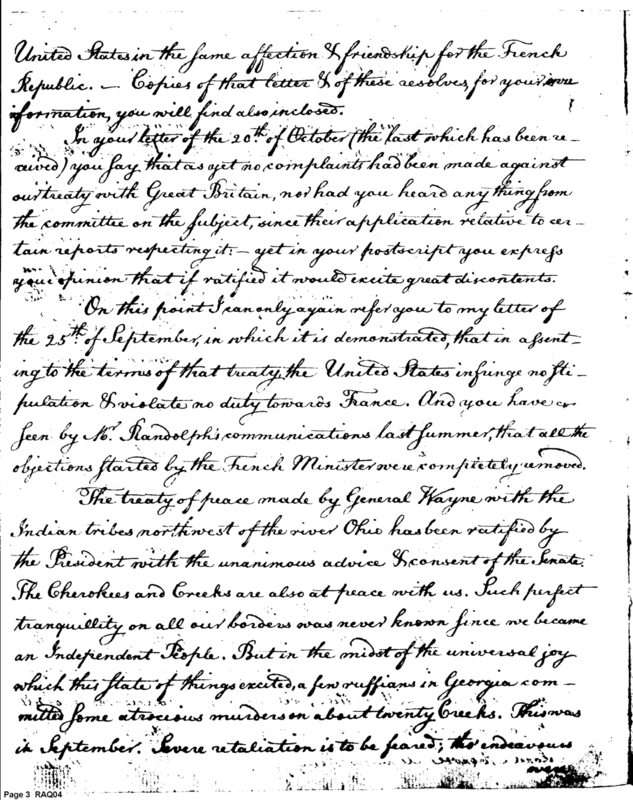 United States in the same affection & friendship for the French
Republic. — Copies of that letter & of these resolves, for your own
information, you will find also inclosed.
In your letter of the 20th. of October (the last which has been re-
ceived) you say that as yet no complaints had been made against
our treaty with Great Britain, nor had you heard any thing from
the committee on the subject, since their application relative to cer-
tain reports respecting it: — yet in your postscript you express
your opinion that if ratified it would excite great discontents.
On this point I can only again refer you to my letter of
the 25th. of September, in which it is demonstrated, that in assent-
ing to the terms of that treaty, the United States infringe no sti-
pulation & violate no duty towards France. And you have
seen by Mr. Randolph's communications last summer, that all the
objections started by the French Minister were completely removed.
The treaty of peace made by General Wayne with the
Indian tribes northwest of the river Ohio has been ratified by
the President with the unanimous advice & consent of the Senate.
The Cherokees and Creeks are also at peace with us. Such perfect
tranquillity on all our borders was never known since we became
an Independent People. But in the midst of the universal joy
which this state of things excited, a few ruffians in Georgia com-
mitted some atrocious murders on about twenty Creeks. This was
in September. Severe retaliation is to be feared; tho' endeavours
Page 3 RAQ04